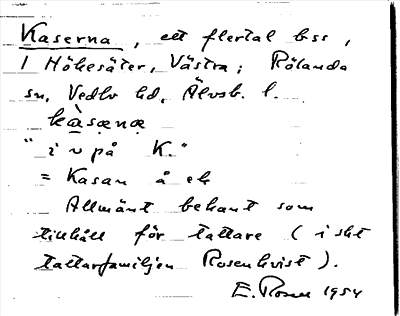 Kaserna, ett flertal bss,
i Hökesäter, Västra; Rölanda
sn, Vedbo hd, Älvsb. l.
kàsænæ
"i ~ på K."
= Kasan å ek
Allmänt bekant som
tillhåll för tattare (i sht
tattarfamiljen Rosenkvist).
E. Rosen 1954